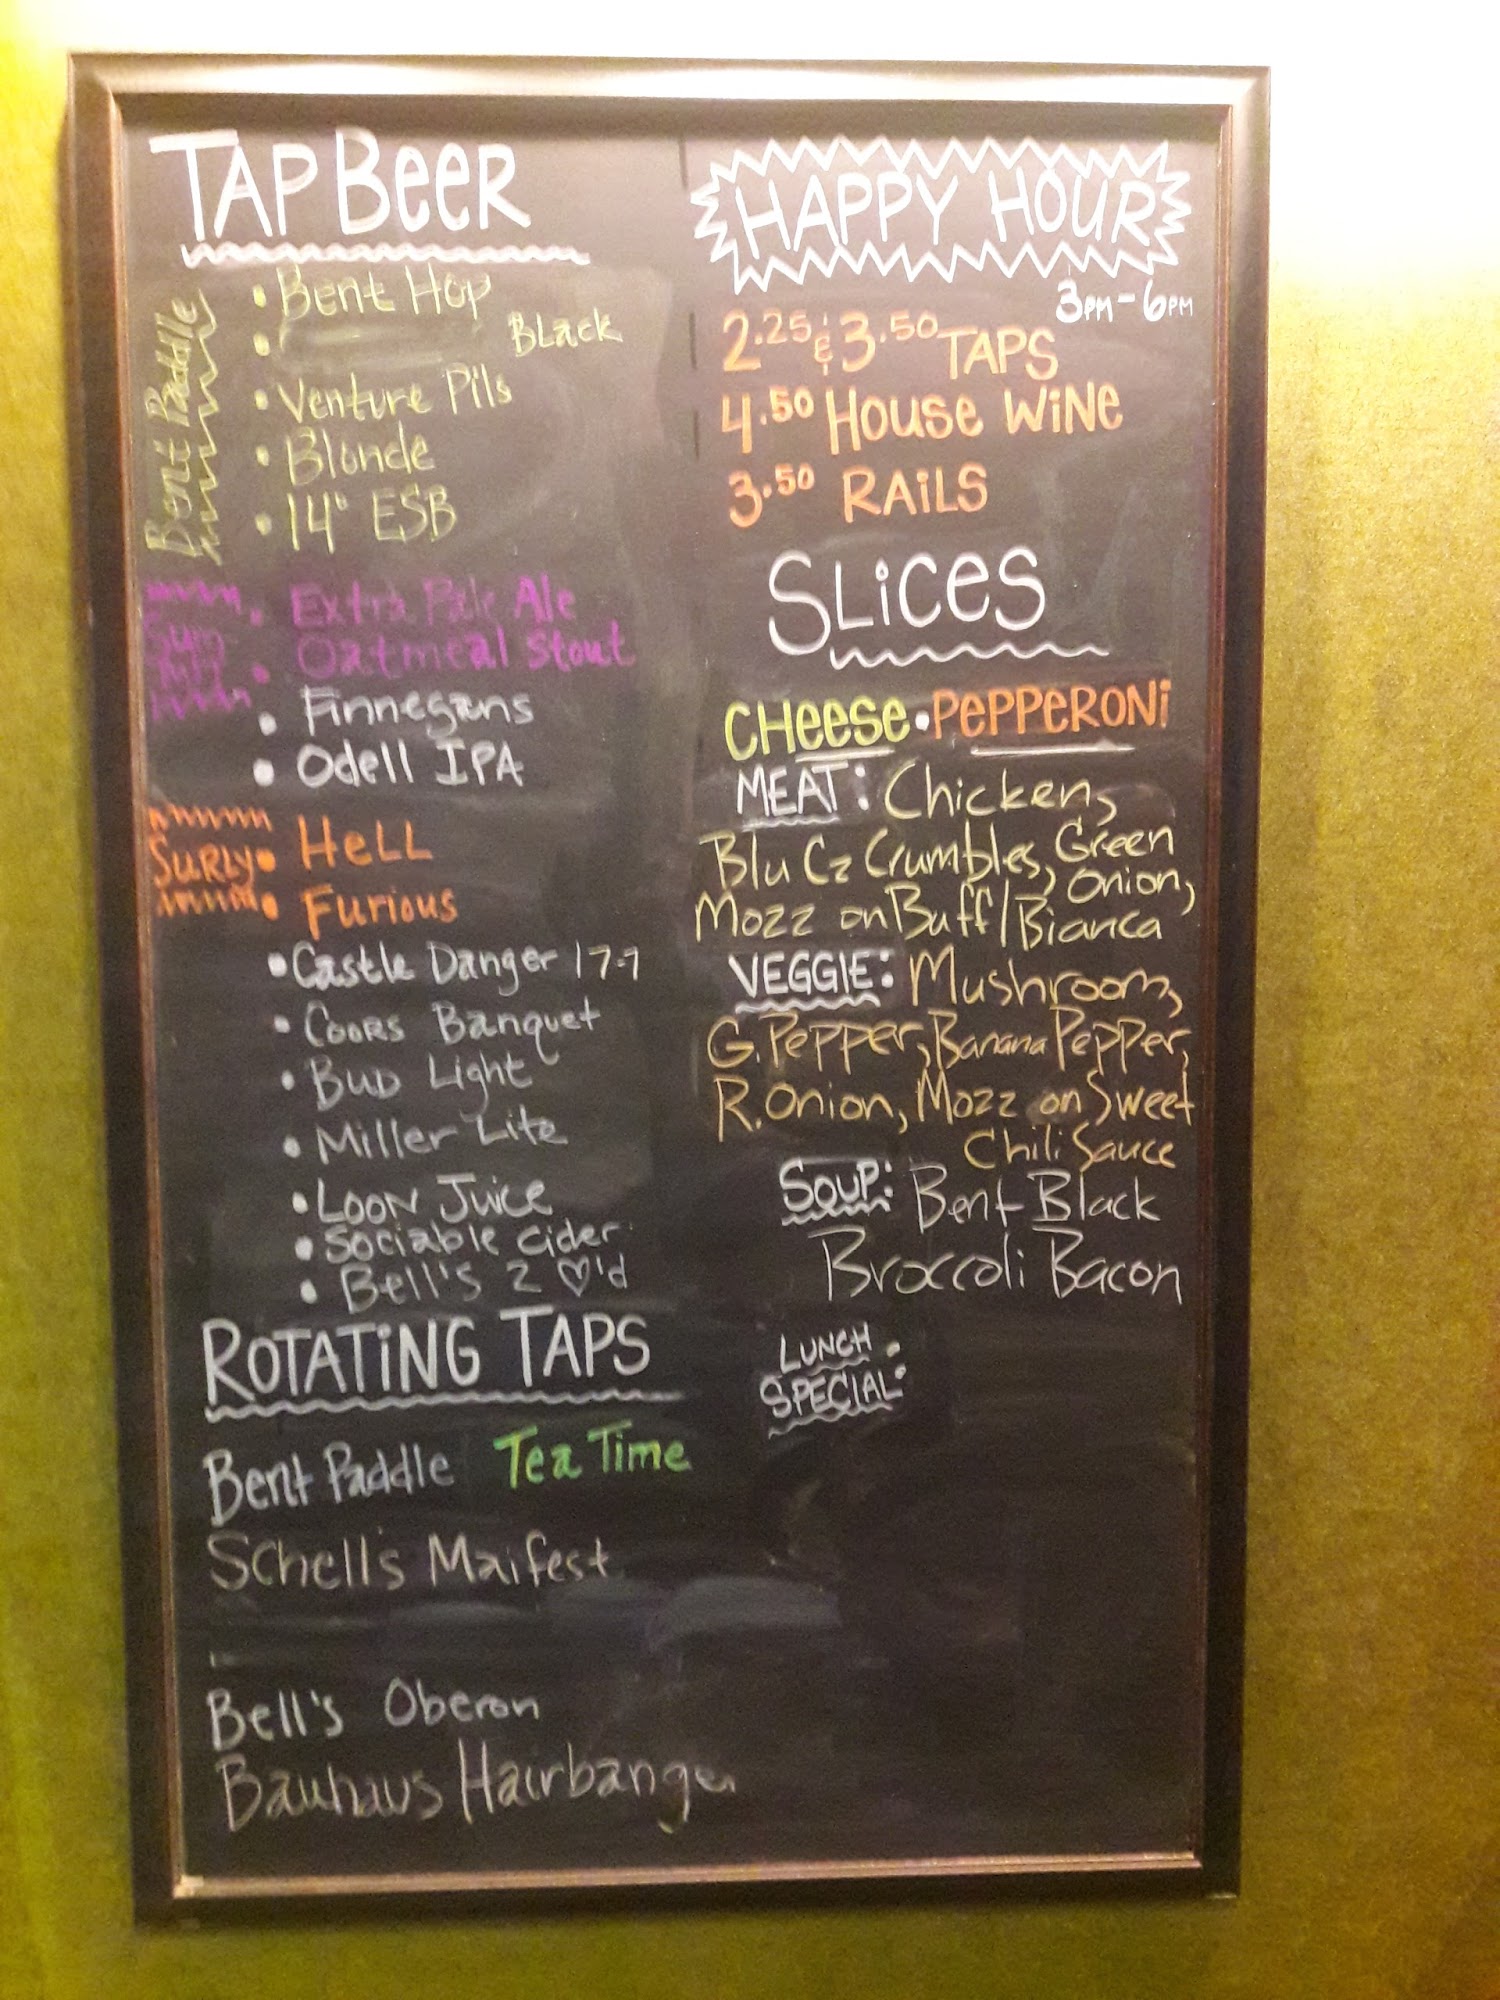 TAP BeeR
Bent Paddle
• Bent Hop
• BLack
• Venture Pils
• Blonde
• 14° ESB
• Extra Pale Ale
• Oatmeal Stout
• Finnegans
• Odell IPA
SURLY
• HeLL
• Furious
• Castle Danger 17-7
• Coors Banquet
• Bud Light
• Miller Lite
• Loon Juice
• Sociable Cider
• Bell's 2 ♡'d
ROTATiNG TAPS
Bent Paddle Tea Time
Schell's Maifest
Bell's Oberon
Bauhaus Hairbanger
HAPPY HOUR
3PM - 6PM
2.25 & 3.50 TAPS
4.50 House WiNe
3.50 RAiLS
SLiCeS
CHeese • PePPeRONi
MEAT: Chicken,
Blu Cz Crumbles, Green
Onion,
Mozz on Buff/Bianca
VEGGIE: Mushroom,
G. Pepper, Banana Pepper,
R. Onion, Mozz on Sweet
Chili Sauce
SOUP: Bent Black
Broccoli Bacon
LUNCH
SPECIAL: